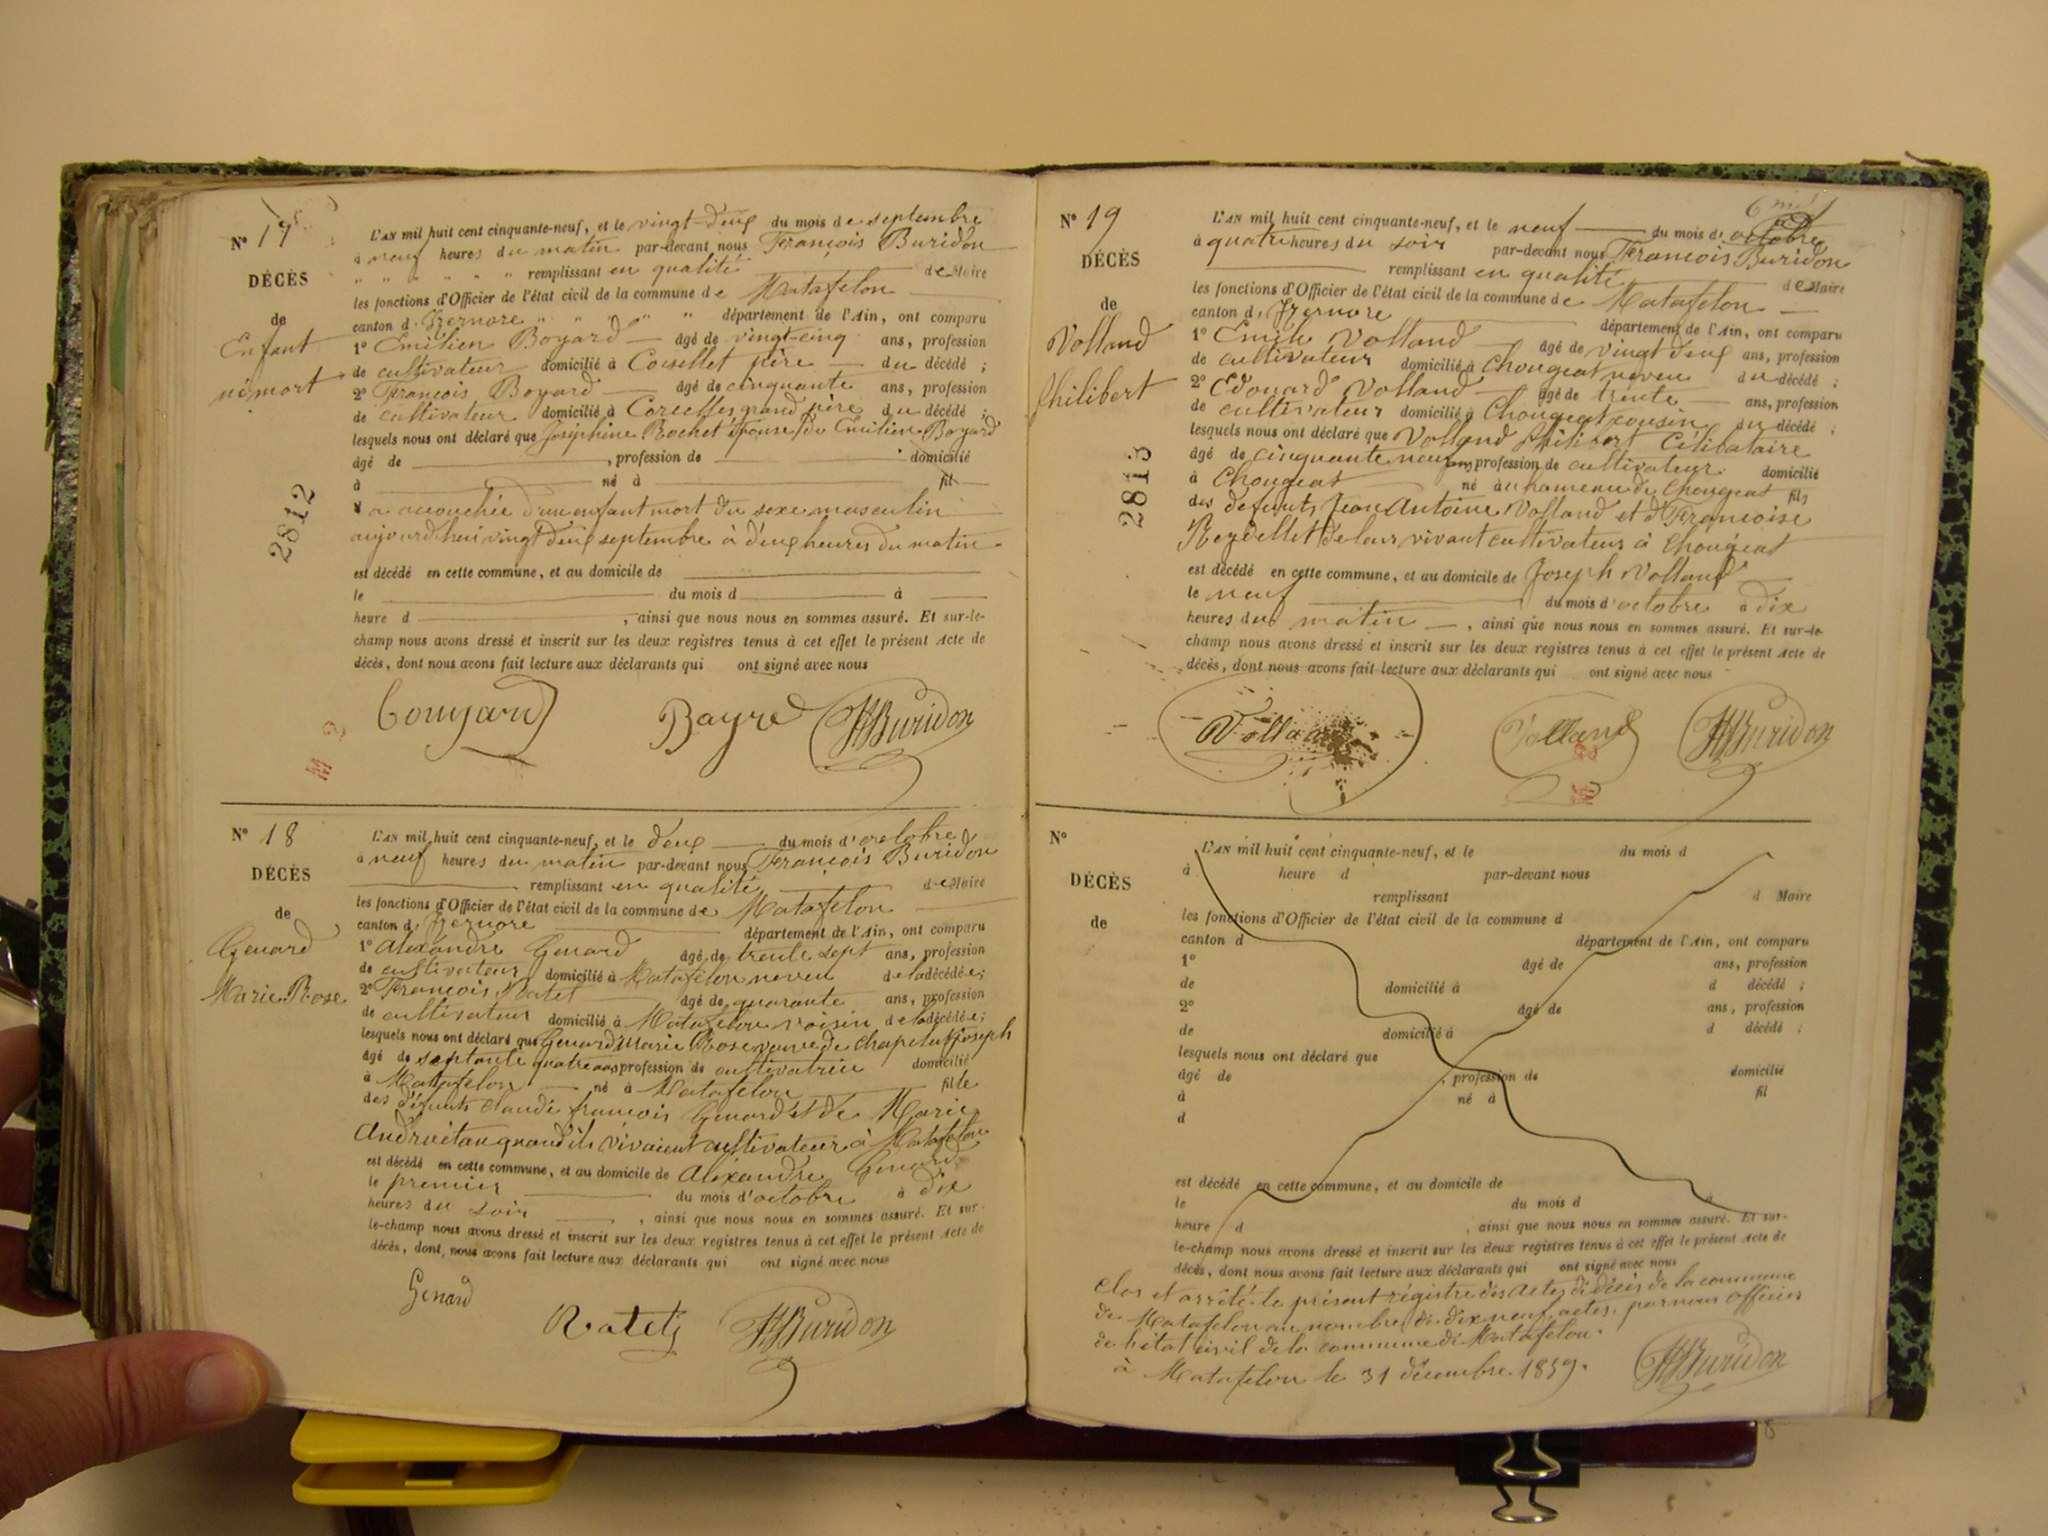 N° 17
DÉCÈS
de
Enfant
né mort
2812
L'AN mil huit cent cinquante-neuf, et le vingt-deux du mois de septembre
à neuf heures du matin par-devant nous François Buridon
remplissant en qualité de Maire
les fonctions d'Officier de l'état civil de la commune de Matafelon
canton d'Izernore département de l'Ain, ont comparu
1° Emilien Boyard âgé de vingt-cinq ans, profession
de cultivateur domicilié à père du décédé ;
2° François Boyard âgé de cinquante ans, profession
de cultivateur domicilié à Corcelles grand père du décédé ;
lesquels nous ont déclaré que Joséphine Rochet épouse du Emilien Boyard
âgé de , profession de domicilié
à né à fil
a accouchée d'un enfant mort du sexe masculin
aujourd'hui vingt deux septembre à deux heures du matin
est décédé en cette commune, et au domicile de
le du mois d à
heure d , ainsi que nous nous en sommes assuré. Et sur-le-
champ nous avons dressé et inscrit sur les deux registres tenus à cet effet le présent Acte de
décès, dont nous avons fait lecture aux déclarants qui ont signé avec nous
Buridon
M 2
N° 18
DÉCÈS
de
Genard
Marie Rose
L'AN mil huit cent cinquante-neuf, et le deux du mois d'octobre
à neuf heures du matin par-devant nous François Buridon
remplissant en qualité de Maire
les fonctions d'Officier de l'état civil de la commune de Matafelon
canton d'Izernore département de l'Ain, ont comparu
1° Alexandre Genard âgé de trente sept ans, profession
de cultivateur domicilié à Matafelon neveu de la décédée ;
2° François Ratet âgé de quarante ans, profession
de cultivateur domicilié à Matafelon voisin de la décédée ;
lesquels nous ont déclaré que Genard Marie Rose veuve de Chapelut Joseph
âgé de septante quatre ans profession de cultivatrice domicilié
à Matafelon né à Matafelon fille
des défunts Claude françois Genard et de Marie
quand ils vivaient cultivateur à Matafelon
est décédé en cette commune, et au domicile de Alexandre Genard
le premier du mois d'octobre à dix
heures du soir , ainsi que nous nous en sommes assuré. Et sur-
le-champ nous avons dressé et inscrit sur les deux registres tenus à cet effet le présent Acte de
décès, dont nous avons fait lecture aux déclarants qui ont signé avec nous
Genard
Buridon
N° 19
DÉCÈS
de
Volland
Philibert
2813
L'AN mil huit cent cinquante-neuf, et le neuf du mois d'octobre
à quatre heures du soir par-devant nous François Buridon
remplissant en qualité de Maire
les fonctions d'Officier de l'état civil de la commune de Matafelon
canton d'Izernore département de l'Ain, ont comparu
1° Emile Volland âgé de vingt deux ans, profession
de cultivateur domicilié à Chougeat neveu du décédé ;
2° Edouard Volland âgé de trente ans, profession
de cultivateur domicilié à Chougeat cousin du décédé ;
lesquels nous ont déclaré que Volland Philibert Célibataire
âgé de cinquante neuf ans profession de cultivateur domicilié
à Chougeat né au hameau de Chougeat fils
des défunts Jean Antoine Volland et d Françoise
Reydellet de leur vivant cultivateurs à Chougeat
est décédé en cette commune, et au domicile de Joseph Volland
le neuf du mois d'octobre à dix
heures du matin , ainsi que nous nous en sommes assuré. Et sur-le-
champ nous avons dressé et inscrit sur les deux registres tenus à cet effet le présent Acte de
décès, dont nous avons fait lecture aux déclarants qui ont signé avec nous
Volland Volland Buridon
N°
DÉCÈS
de
L'AN mil huit cent cinquante-neuf, et le du mois d
à heure d par-devant nous
remplissant d Maire
les fonctions d'Officier de l'état civil de la commune d
canton d département de l'Ain, ont comparu
1° âgé de ans, profession
de domicilié à d décédé ;
2° âgé de ans, profession
de domicilié à d décédé ;
lesquels nous ont déclaré que
âgé de , profession de domicilié
à né à fil
d
est décédé en cette commune, et au domicile de
le du mois d à
heure d , ainsi que nous nous en sommes assuré. Et sur-
le-champ nous avons dressé et inscrit sur les deux registres tenus à cet effet le présent Acte de
décès, dont nous avons fait lecture aux déclarants qui ont signé avec nous
Clos et arrêté le présent régistre des actes de décès de la commune
de Matafelon au nombre de dix neuf actes, par nous officier
de l'état civil de la commune de Matafelon.
à Matafelon le 31 décembre 1859.
Buridon